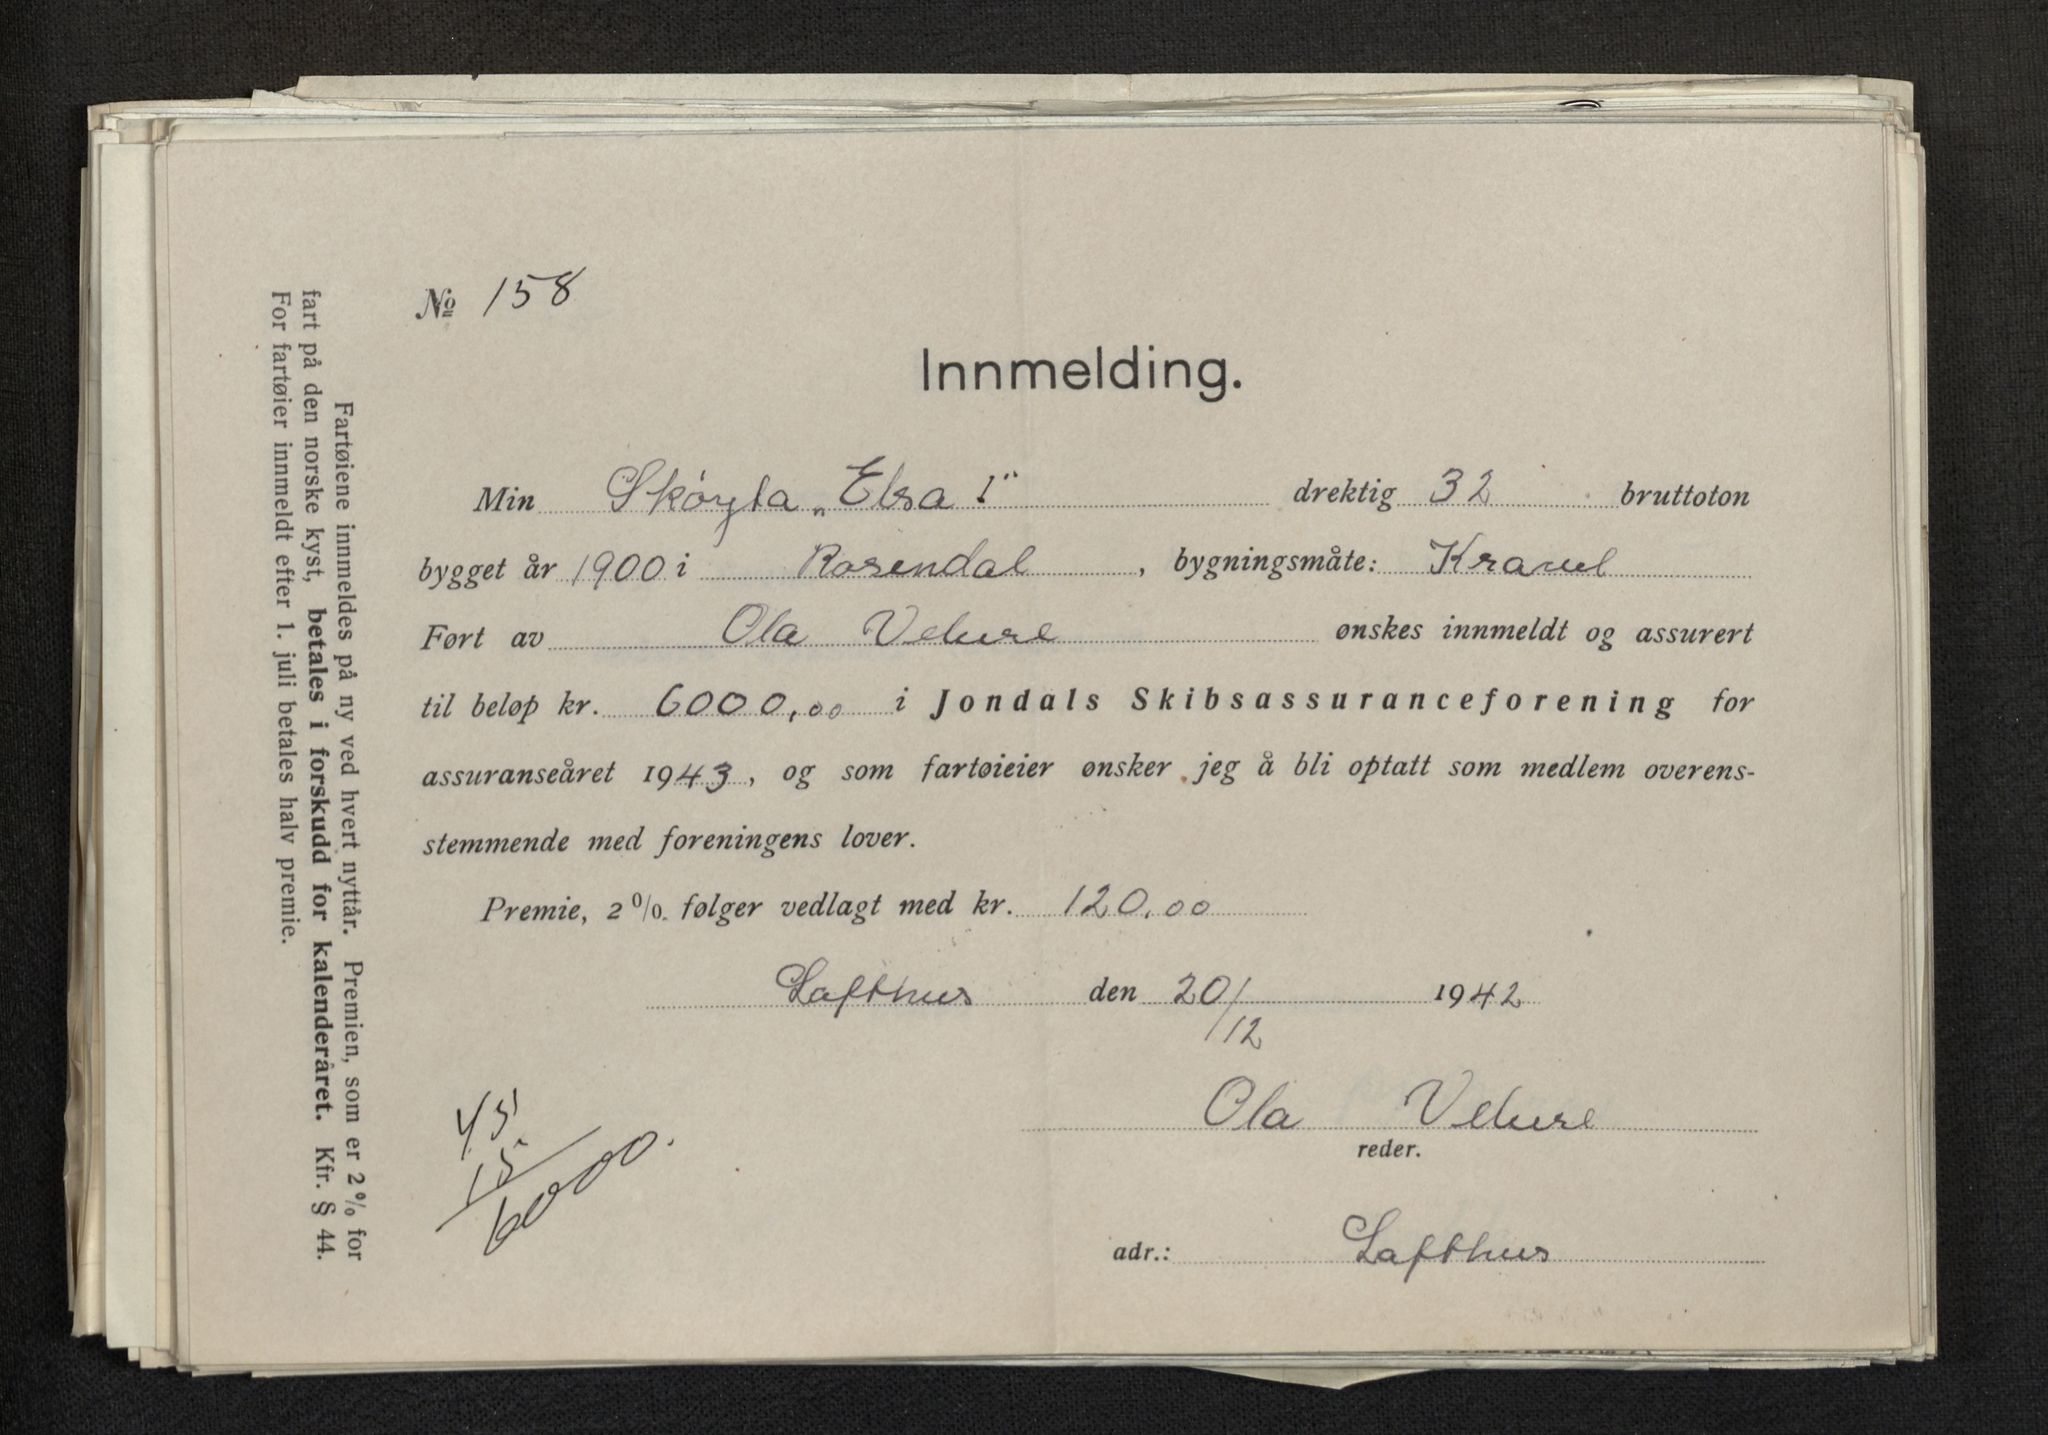 Fartøiene innmeldes på ny ved hvert nyttår. Premien, som er 2 % for
fart på den norske kyst, betales i forskudd for kalenderåret. Kfr. § 44.
For fartøier innmeldt efter 1. juli betales halv premie.
No 158
Innmelding.
Min Skøyta „Elsa I" drektig 32 bruttoton
bygget år 1900 i Rosendal, bygningsmåte: Kravel
Ført av Ola Velure ønskes innmeldt og assurert
til beløp kr. 6000,00 i Jondals Skibsassuranceforening for
assuranseåret 1943, og som fartøieier ønsker jeg å bli optatt som medlem overens-
stemmende med foreningens lover.
Premie, 2 %. følger vedlagt med kr. 120,00
Lofthus den 20/12 1942
Ola Velure
reder.
adr.: Lofthus
45
15
6000.